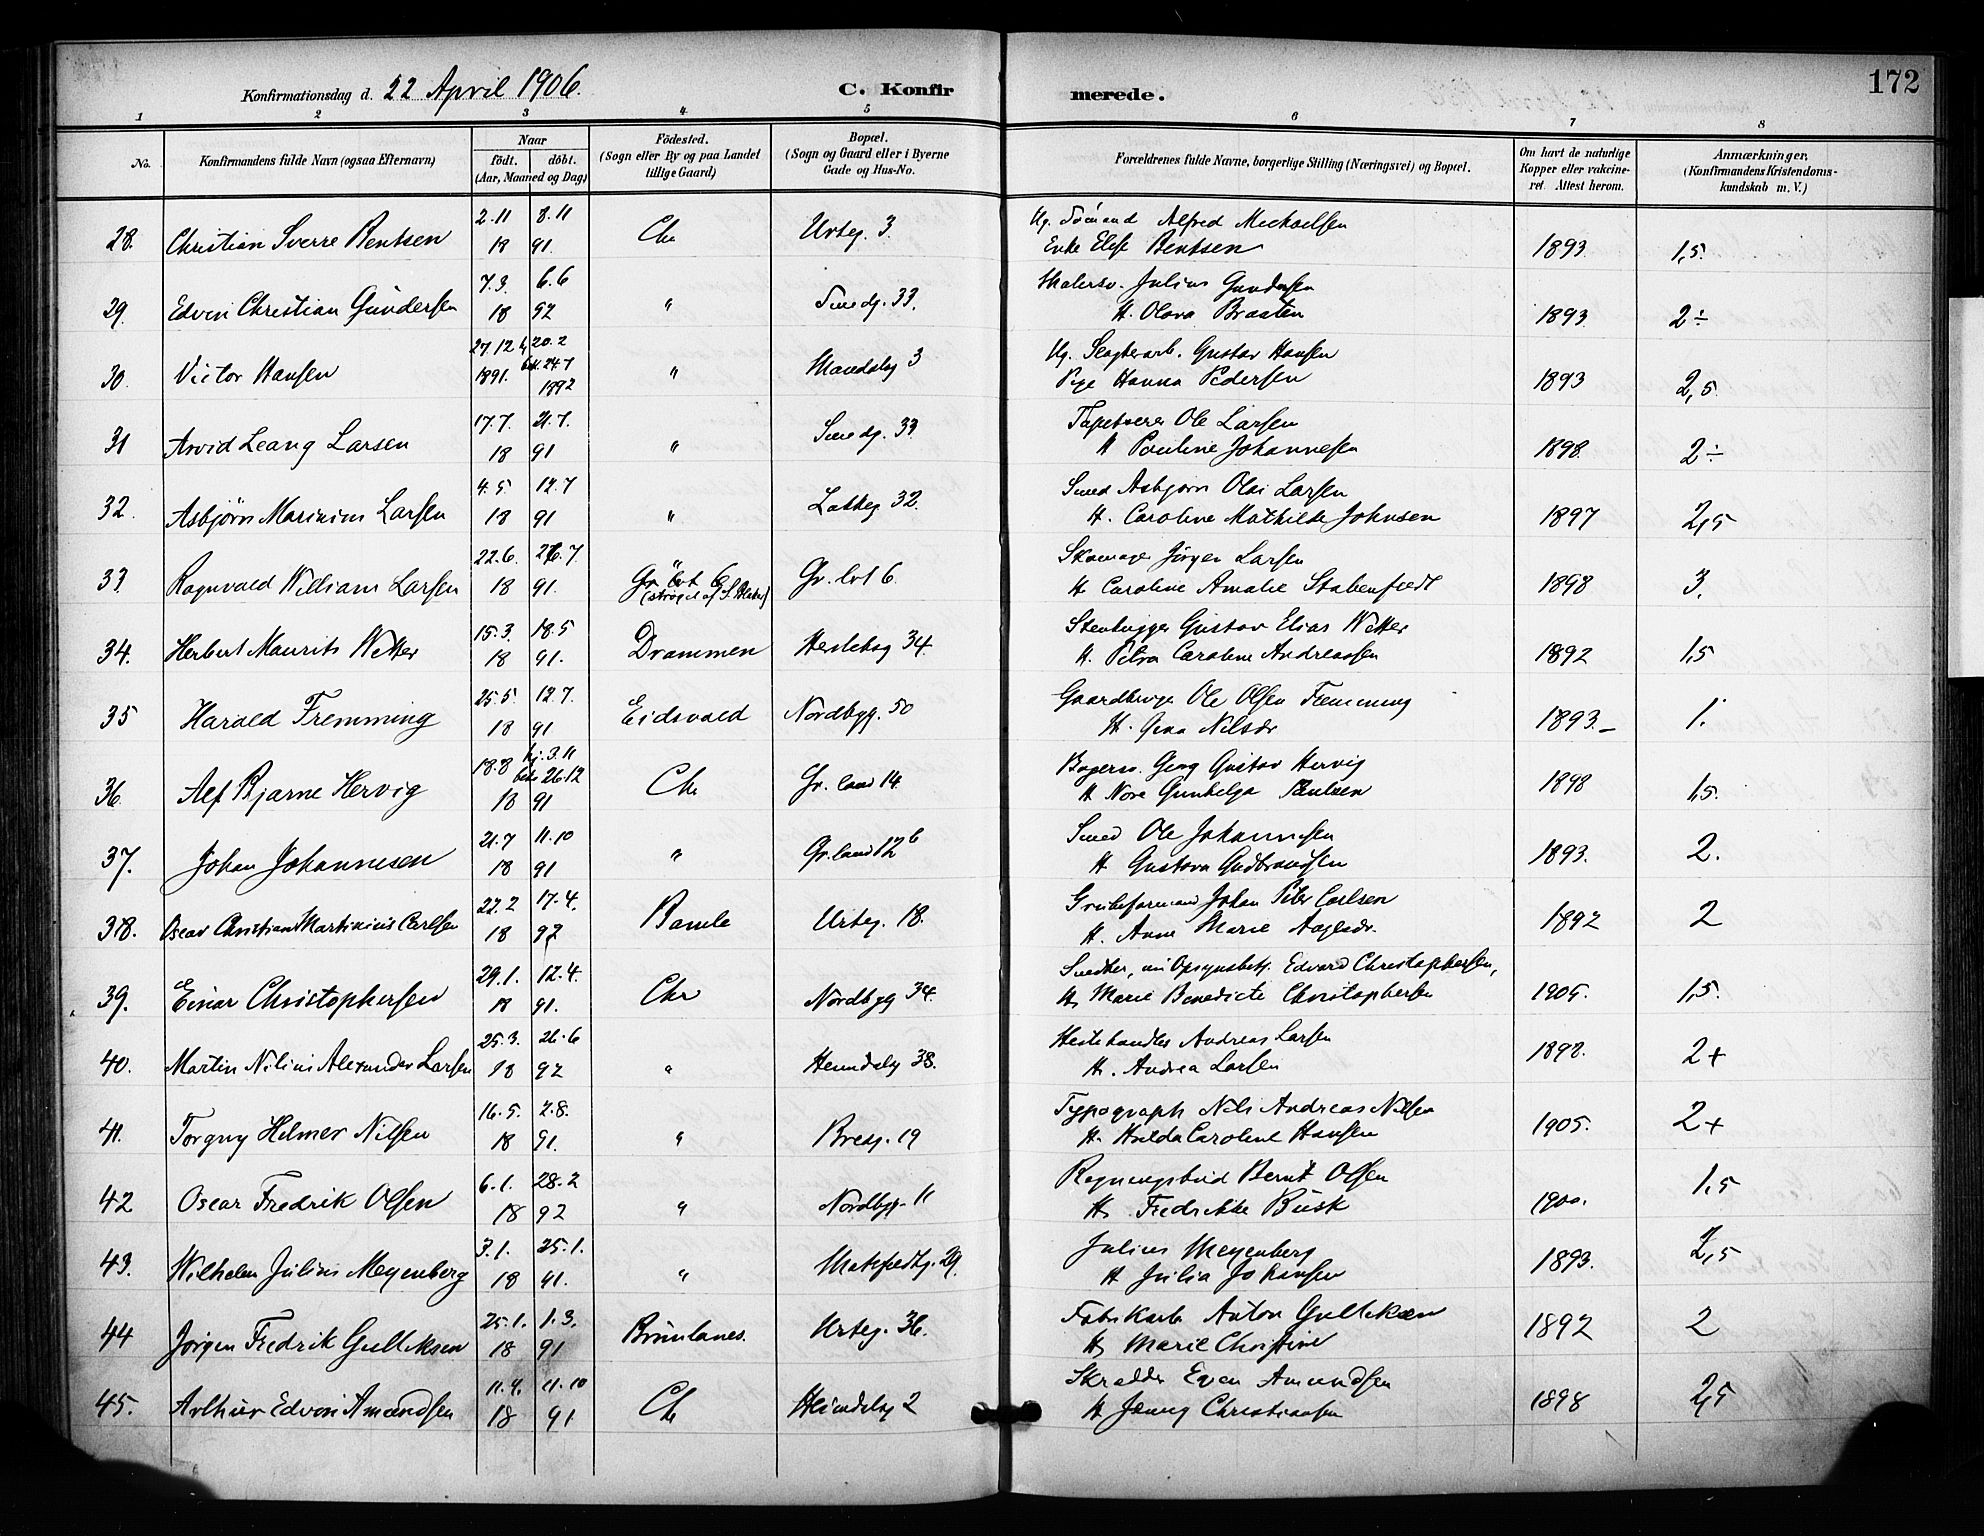 Konfirmationsdag d. 22 April 1906. C. Konfir merede. 172
1 2 3 4 5 6 7 8
No. Konfirmandens fulde Navn (ogsaa Efternavn) Naar født. døbt. (Aar, Maaned og Dag) Fødested. (Sogn eller By og paa Landet tillige Gaard) Bopæl. (Sogn og Gaard eller i Byerne Gade og Hus-No. Forældrenes fulde Navne, borgerlige Stilling (Næringsvei) og Bopæl. Om havt de naturlige Kopper eller vakcineret. Attest herom. Anmærkninger, (Konfirmandens Kristendomskundskab m. V.)
2.11 8.11 Alfred Michaelsen
28. Christian Sverre Bentsen 18 91. Chr Urteg. 3. Enke Elise Bentsen 1893. 1,5.
7.3. 6.6 Malersv. Julius Gundersen
29. Edvin Christian Gundersen 18 92 " Smedg. 33. H. Olava Braaten 1893. 2÷
27.12 20.2 Ug. Slagterarb. Gustav Hansen
30. Victor Hansen 1891. bek. 24.7 1892 " Mandalsg 3 Pige Hanna Pedersen 1893 2,5.
17.7. 21.7. Tapetserer Ole Larsen
31 Arvid Leang Larsen 18 91 " Smedg. 33. H Pauline Johannesen 1898. 2÷
4.5 12.7 Smed Asbjørn Olai Larsen
32. Asbjörn Marinius Larsen 18 91 " Lakkeg 32. H. Caroline Mathilde Johnsen 1897 2,5
22.6. 26.7 Skomager Jörgen Larsen
33. Ragnvald William Larsen 18 91. Gr. lvt 6 Gr. lvt 6. H. Caroline Amalie Stabenfeldt 1898 3.
15.3. 18.5 Stenhugger Gustav Elias Wetter
34. Herbert Maurits Wetter 18 91. Drammen Heslebsg 34. H. Petra Caroline Andreassen 1892 1,5
25.5. 12.7. Gaardbruger Ole Olsen Fremming
35 Harald Fremming 18 91 Eidsvold Nordbyg. 50 H. Gina Nilsdr 1893. 1.
18.8 hj. 3.11 bek. 26.12 Bagersv. Georg Gustav Hervig
36. Alf Bjarne Hervig 18 91 Chr Gr. land 14. H Nora Gunhelga Paulsen 1898 1,5.
21.7 11.10 Smed Ole Johannesen
37. Johan Johannesen 18 91 " Gr. land 12 b H. Gustava Gudbrandsen 1893. 2.
22.2 17.4. Grubeformand Johan Peter Carlsen
38. Oscar Christian Martinius Carlsen 18 92 Bamle Urteg. 18. H. Anne Marie Aagesdr. 1892 2
29.1. 12.4. Snedker, nu Opsynsbetj. Edvard Christophersen,
39. Einar Christophersen 18 91. Chr Nordbyg 34. H. Marie Benedicte Christophersen 1905. 1,5.
25.3. 26.6 Hestehandler Andreas Larsen
40. Martin Nilius Alexander Larsen 18 92 " Heimdalsg 38. H. Andrea Larsen 1892. 2+
16.5. 2.8. Typograph Nils Andreas Nilsen
41. Torguy Helmer Nilsen 18 91. " Breig. 19 H. Hulda Caroline Hansen 1905. 2+
6.1. 28.2 Regningsbud Bernt Olsen
42 Oscar Fredrik Olsen 18 92 " Nordbyg. 11 H. Fredrikke Busk 1900. 1,5
3.1. 25.1. Julius Meyenberg
43. Wilhelm Julius Meyenberg 18 91. " 29. H Julia Johansen 1893. 2,5
25.1. 1.3. Fabrikarb Anton Gulliksen
44 Jörgen Fredrik Gulliksen 18 91 Brunlanes. Urteg. 36. H. Marie Christine 1892 2
11.4. 11.10 Skrædder Even Amundsen
45. Arthur Edvin Amundsen 18 91 Chr Heimdalsg 2 H Jenny Christiansen 1898 2,5